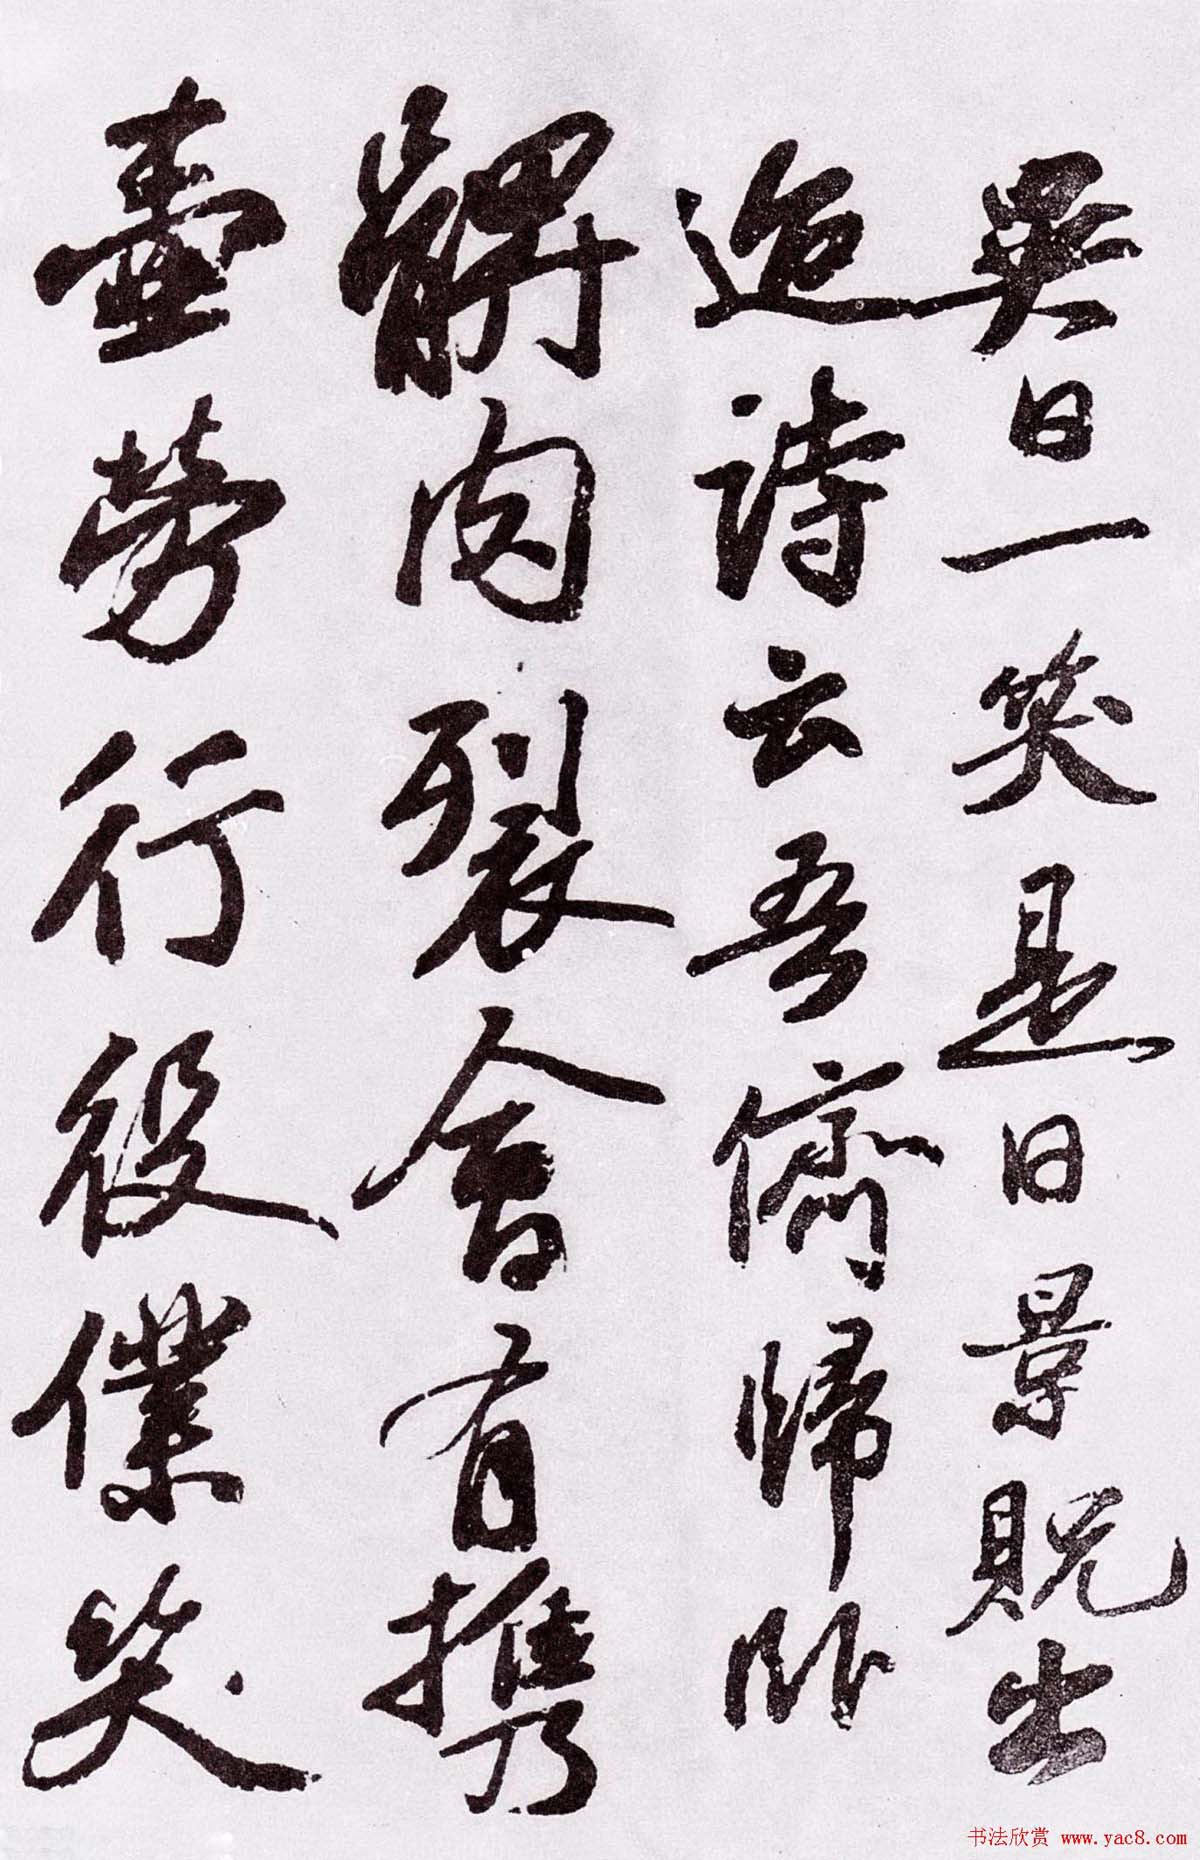 異日一笑是日景貺出
迨詩云吾儕歸臥
髀肉裂會有攜
壺勞行役僕笑
书法欣赏 www.yac8.com